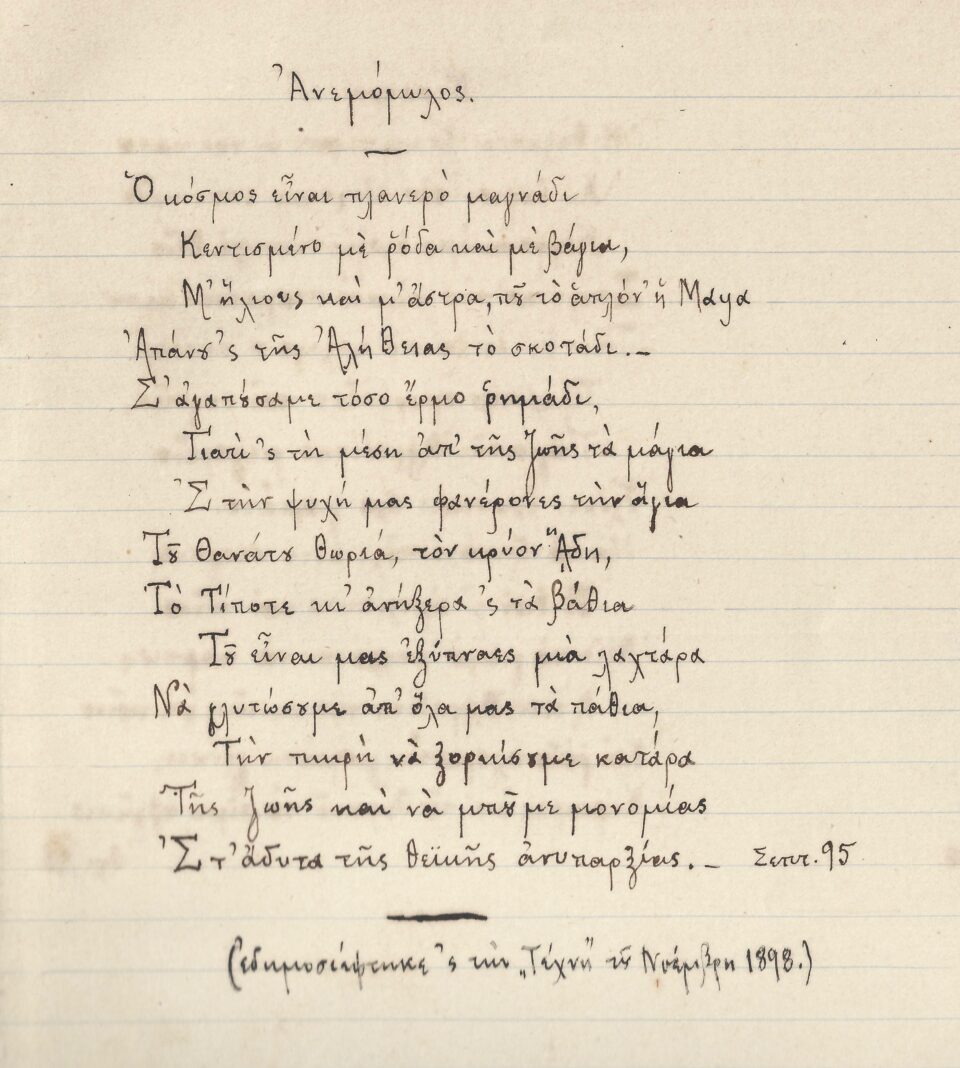 Ἀνεμόμυλος.
Ὁ κόσμος εἶναι πλανερὸ μαγνάδι
Κεντισμένο μὲ ῥόδα καὶ μὲ βάγια,
Μ' ἥλιους καὶ μ' ἄστρα, ποῦ τὸ ἁπλόν' ἡ Μαγα
Ἀπάνου 'ς τῆς Ἀλήθειας τὸ σκοτάδι.—
Σ' ἀγαπούσαμε τόσο ἔρμο ῥημάδι,
Γιατὶ 'ς τὴ μέση ἀπ' τῆς ζωῆς τὰ μάγια
'Σ τὴν ψυχή μας φανέρονες τὴν ἅγια
Τοῦ Θανάτου θωριά, τὸν κρύον Ἅδη,
Τὸ Τίποτε κι' ἀνήξερα 'ς τὰ βάθια
Τοῦ εἶναι μας ἐξύπναες μιὰ λαχτάρα
Νὰ γλυτώσουμε ἀπ' ὅλα μας τὰ πάθια,
Τὴν πικρὴ νὰ ξορκίσουμε κατάρα
Τῆς ζωῆς καὶ νὰ μποῦμε μονομίας
'Σ τ' ἄδυτα τῆς θεϊκῆς ἀνυπαρξίας.— Σεπτ. 95
(ἐδημοσιέφτηκε 'ς τὴν „Τέχνη" τοῦ Νοέμβρη 1898.)